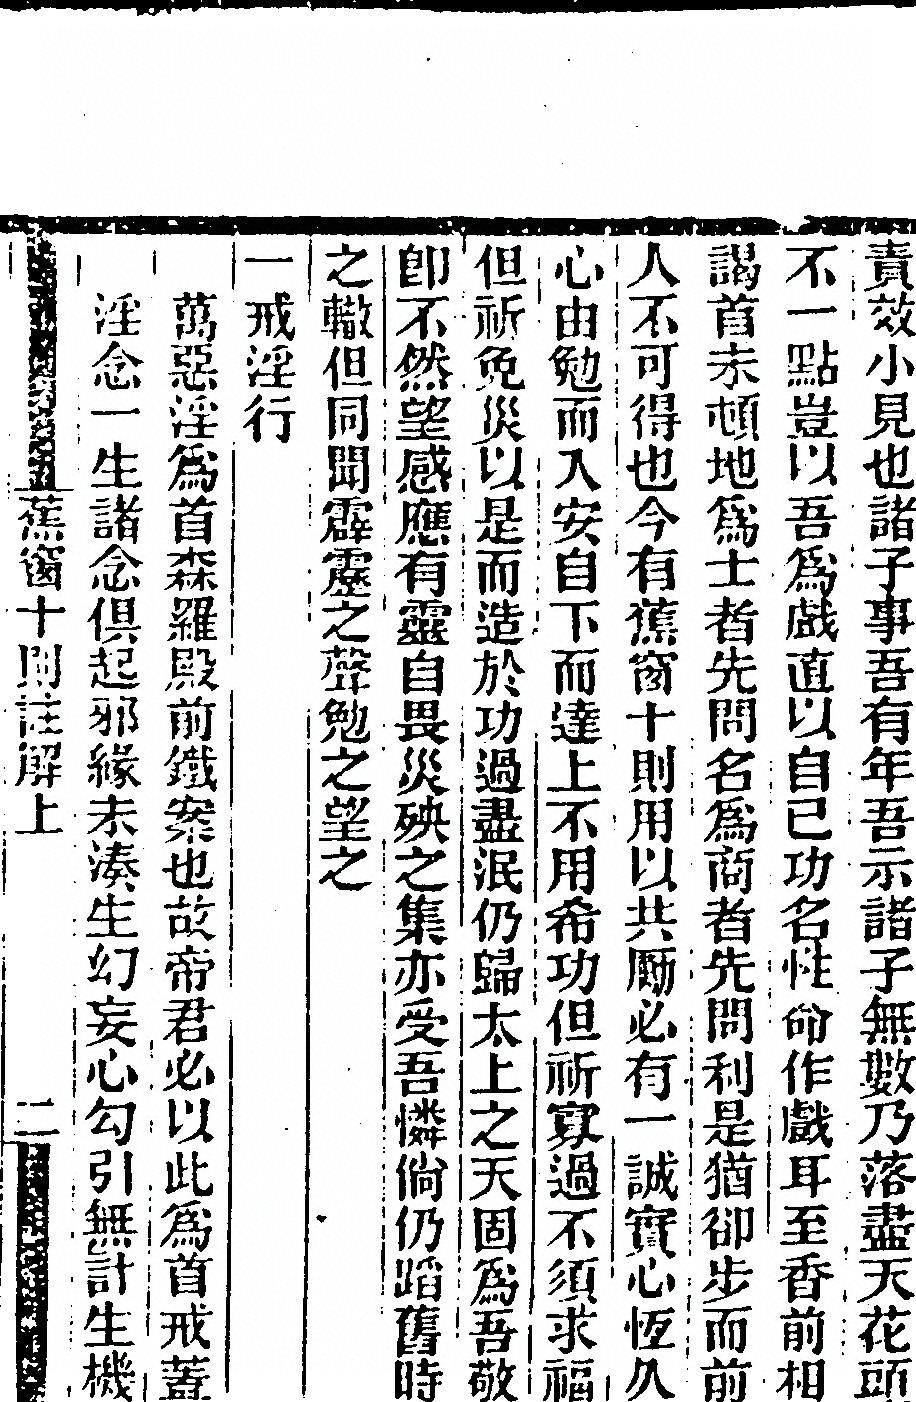 責效小見也諸子事吾有年吾示諸子無數乃落盡天花頭
不一點豈以吾為戲直以自已功名性命作戲耳至香前相
謁首未頓地為士者先問名為商者先問利是猶卻步而前
人不可得也今有蕉窗十則用以共勵必有一誠實心恆久
心由勉而入安自下而達上不用希功但祈寡過不須求福
但祈免災以是而造於功過盡泯仍歸太上之天固為吾敬
卽不然望感應有靈自畏災殃之集亦受吾憐倘仍蹈舊時
之轍但同聞霹靂之聲勉之望之
一戒淫行
萬惡淫為首森羅殿前鐵案也故帝君必以此為首戒蓋
淫念一生諸念俱起邪緣未湊生幻妄心勾引無計生機
蕉窗十則註解上
二